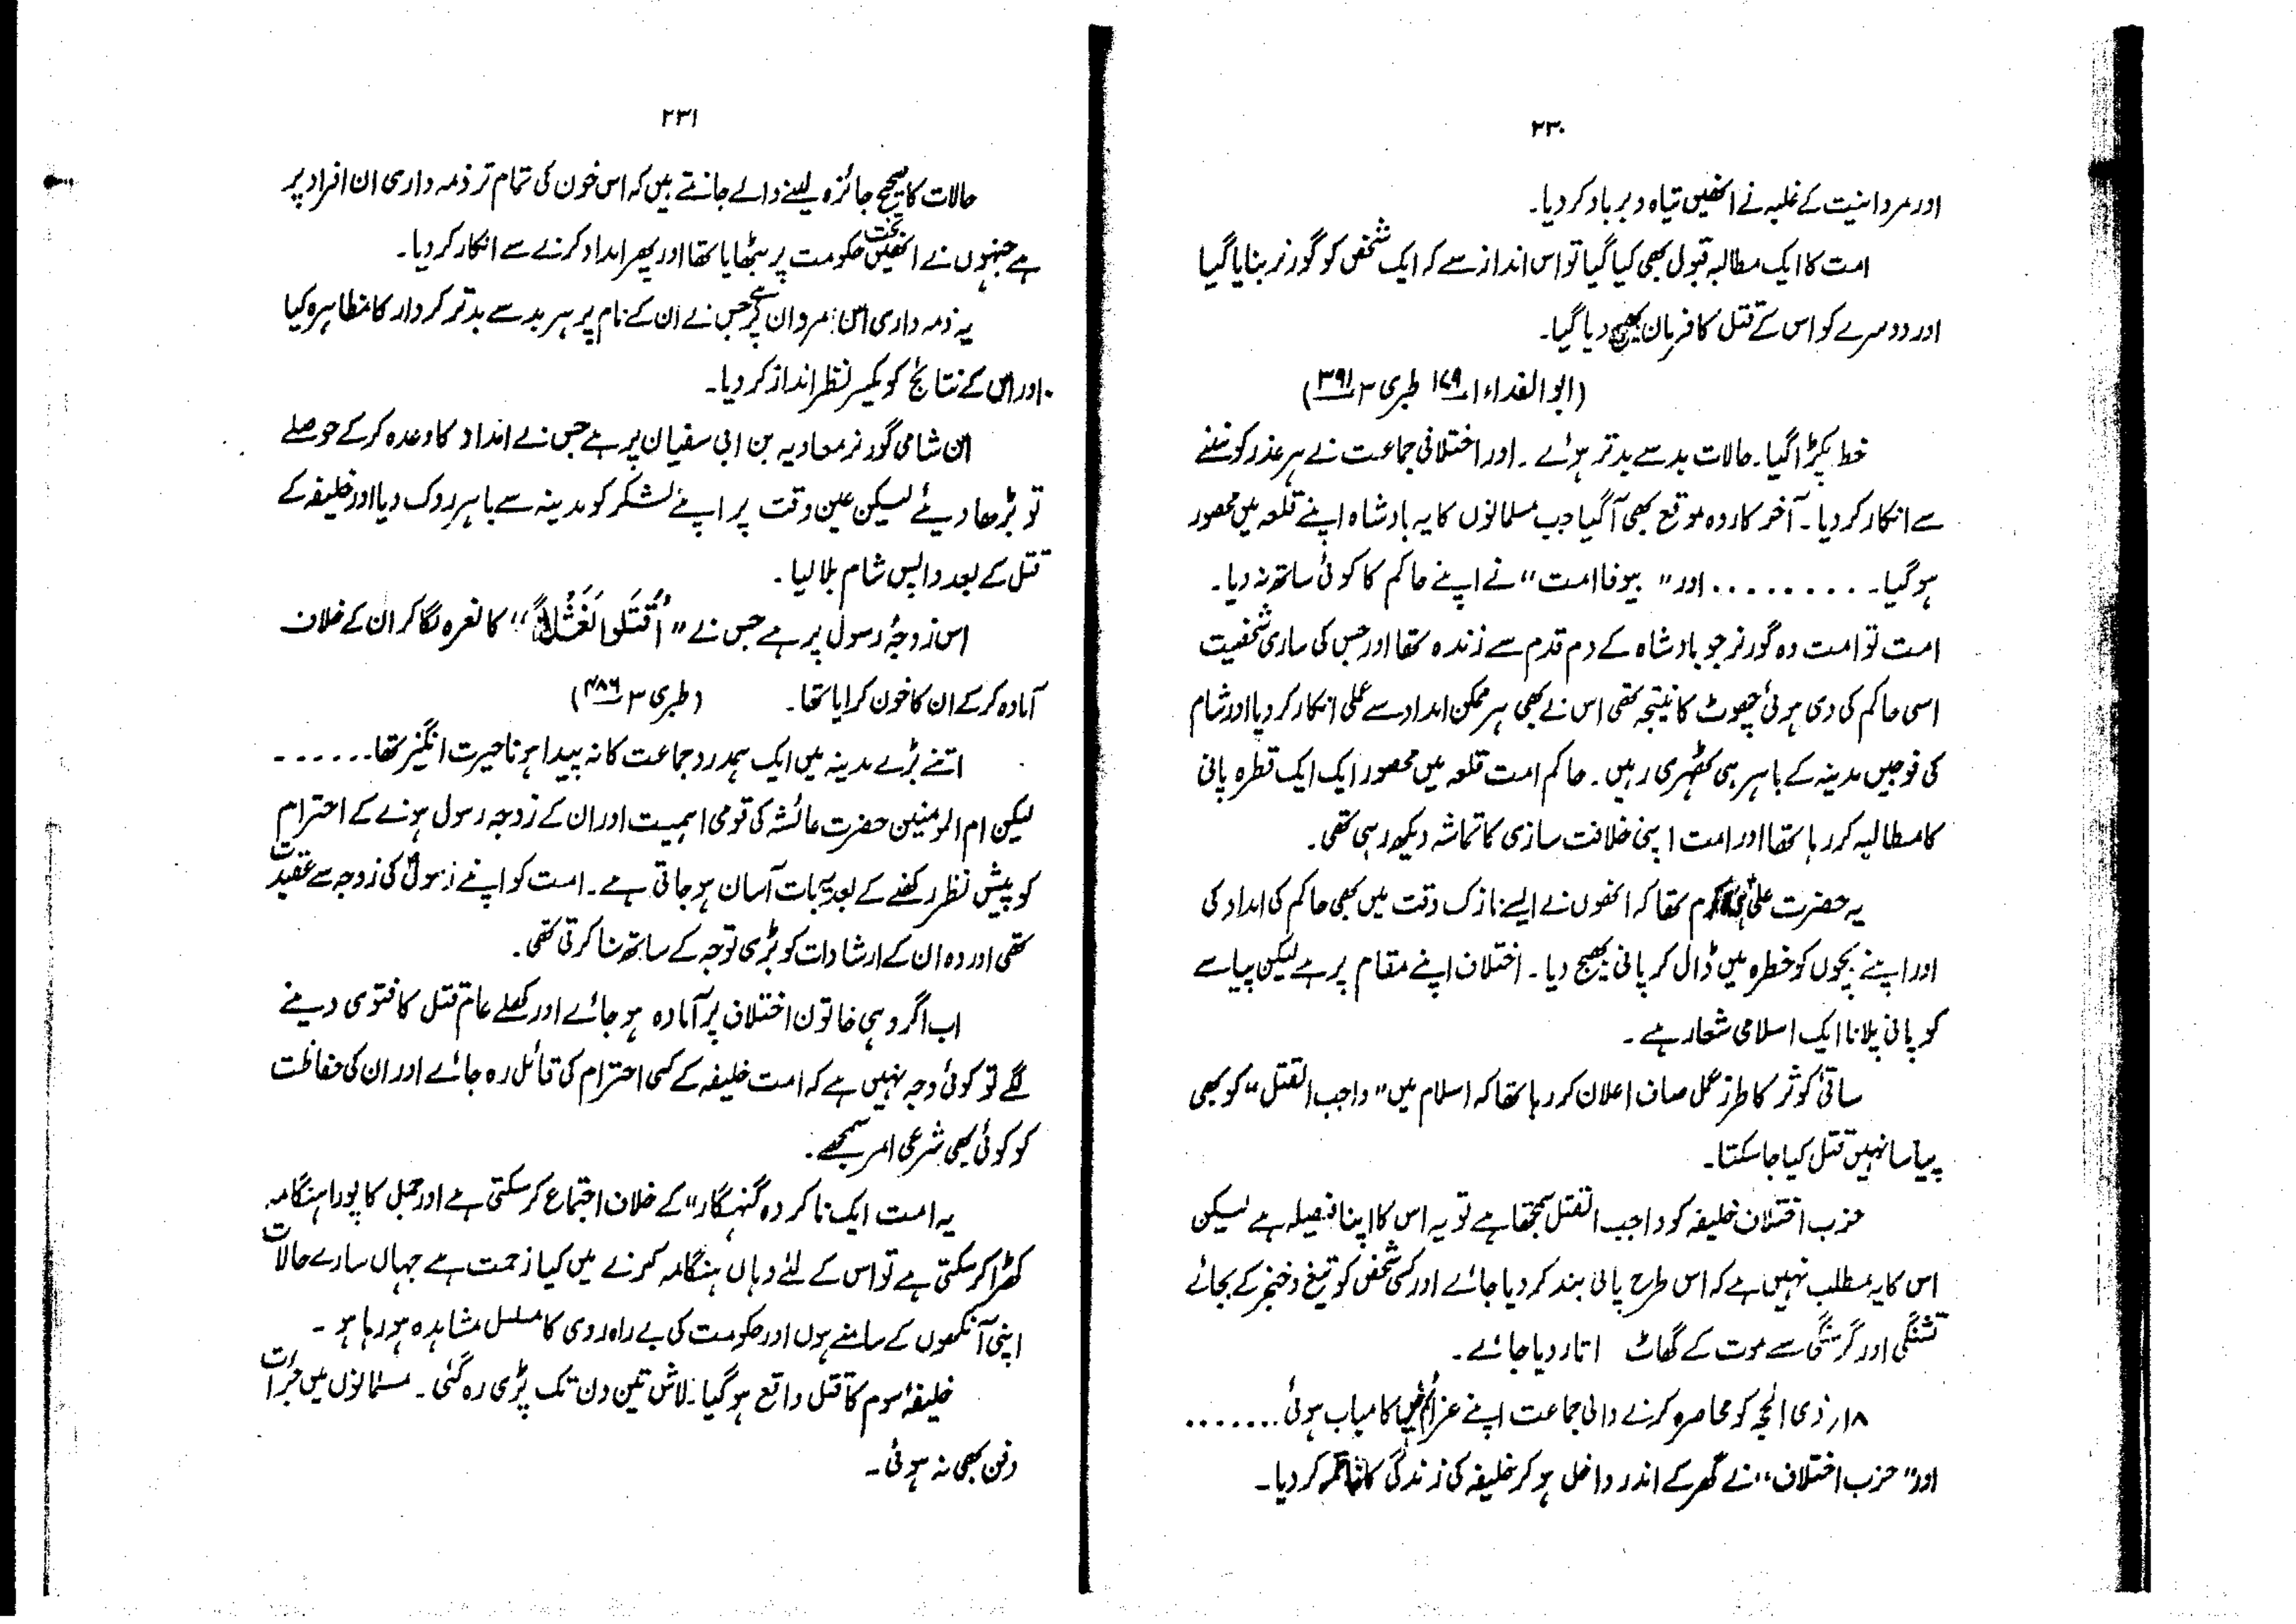 ۲۳۰
اور مروانیت کے غلبہ نے انھیں تباہ و برباد کر دیا۔
امت کا ایک مطالبہ قبول بھی کیا گیا تو اس انداز سے کہ ایک شخص کو گورنر بنایا گیا
اور دوسرے کو اس کے قتل کا فرمان بھیج دیا گیا۔
(ابوالفداء ۱ ۱۶۹ طبری ۳ ۳۹۱)
خط پکڑا گیا۔ حالات بد سے بدتر ہوئے ۔ اور اختلافی جماعت نے ہر عذر کو سننے
سے انکار کر دیا ۔ آخر کار وہ موقع بھی آگیا جب مسلمانوں کا یہ بادشاہ اپنے قلعہ میں محصور
ہو گیا ۔ ......... اور "بیوفا امت" نے اپنے حاکم کا کوئی ساتھ نہ دیا۔
امت تو امت وہ گورنر جو بادشاہ کے دم قدم سے زندہ تھا اور جس کی ساری شخصیت
اسی حاکم کی دی ہوئی چھوٹ کا نتیجہ تھی اس نے بھی ہر ممکن امداد سے عملی انکار کر دیا اور شام
کی فوجیں مدینہ کے باہر ہی ٹھہری رہیں۔ حاکم امت قلعہ میں محصور ایک ایک قطرہ پانی
کا مطالبہ کر رہا تھا اور امت اپنی خلافت سازی کا تماشہ دیکھ رہی تھی۔
یہ حضرت علیؑ کا کرم تھا کہ انھوں نے ایسے نازک وقت میں بھی حاکم کی امداد کی
اور اپنے بچوں کو خطرہ میں ڈال کر پانی بھیج دیا ۔ اختلاف اپنے مقام پر ہے لیکن پیاسے
کو پانی پلانا ایک اسلامی شعار ہے ۔
ساقیٔ کوثر کا طرز عمل صاف اعلان کر رہا تھا کہ اسلام میں "واجب القتل" کو بھی
پیاسا نہیں قتل کیا جا سکتا۔
حزب اختلاف خلیفہ کو واجب القتل سمجھتا ہے تو یہ اس کا اپنا فیصلہ ہے لیکن
اس کا یہ مطلب نہیں ہے کہ اس طرح پانی بند کر دیا جائے اور کسی شخص کو تیغ و خنجر کے بجائے
تشنگی اور گرسنگی سے موت کے گھاٹ اتار دیا جائے ۔
۱۸؍ ذی الحجہ کو محاصرہ کرنے والی جماعت اپنے عزائم میں کامیاب ہوئی.......
اور "حزب اختلاف" نے گھر کے اندر داخل ہو کر خلیفہ کی زندگی کا خاتمہ کر دیا۔
۲۳۱
حالات کا صحیح جائزہ لینے والے جانتے ہیں کہ اس خون کی تمام تر ذمہ داری ان افراد پر
ہے جنہوں نے انھیں تخت حکومت پر بٹھایا تھا اور پھر امداد کرنے سے انکار کر دیا۔
یہ ذمہ داری اس مروان پر ہے جس نے ان کے نام پر ہر بد سے بدتر کردار کا مظاہرہ کیا
اور اس کے نتائج کو یکسر نظر انداز کر دیا۔
اس شامی گورنر معاویہ بن ابی سفیان پر ہے جس نے امداد کا وعدہ کر کے حوصلے
تو بڑھا دیئے لیکن عین وقت پر اپنے لشکر کو مدینہ سے باہر روک دیا اور خلیفہ کے
قتل کے بعد واپس شام بلا لیا ۔
اس زوجۂ رسول پر ہے جس نے "اُقْتُلُوا نَعْثَلاً" کا نعرہ لگا کر ان کے خلاف
آمادہ کر کے ان کا خون کرایا تھا۔ (طبری ۳ ۴۸۶)
اتنے بڑے مدینہ میں ایک ہمدرد جماعت کا نہ پیدا ہونا حیرت انگیز تھا......
لیکن ام المومنین حضرت عائشہ کی قومی اہمیت اور ان کے زوجہ رسول ہونے کے احترام
کو پیش نظر رکھنے کے بعد یہ بات آسان ہو جاتی ہے ۔ امت کو اپنے رسولؐ کی زوجہ سے عقیدت
تھی اور وہ ان کے ارشادات کو بڑی توجہ کے ساتھ سنا کرتی تھی۔
اب اگر وہی خاتون اختلاف پر آمادہ ہو جائے اور کھلے عام قتل کا فتوی دینے
لگے تو کوئی وجہ نہیں ہے کہ امت خلیفہ کے کسی احترام کی قائل رہ جائے اور ان کی حفاظت
کو کوئی بھی شرعی امر سمجھے۔
یہ امت ایک ناکردہ گنہگار" کے خلاف اجتماع کر سکتی ہے اور جمل کا پورا ہنگامہ
کھڑا کر سکتی ہے تو اس کے لئے وہاں ہنگامہ کرنے میں کیا زحمت ہے جہاں سارے حالات
اپنی آنکھوں کے سامنے ہوں اور حکومت کی بے راہ روی کا مسلسل مشاہدہ ہو رہا ہو ۔
خلیفۂ سوم کا قتل واقع ہو گیا۔ لاش تین دن تک پڑی رہ گئی ۔ مسلمانوں میں جرأت
دفن بھی نہ ہوئی ۔